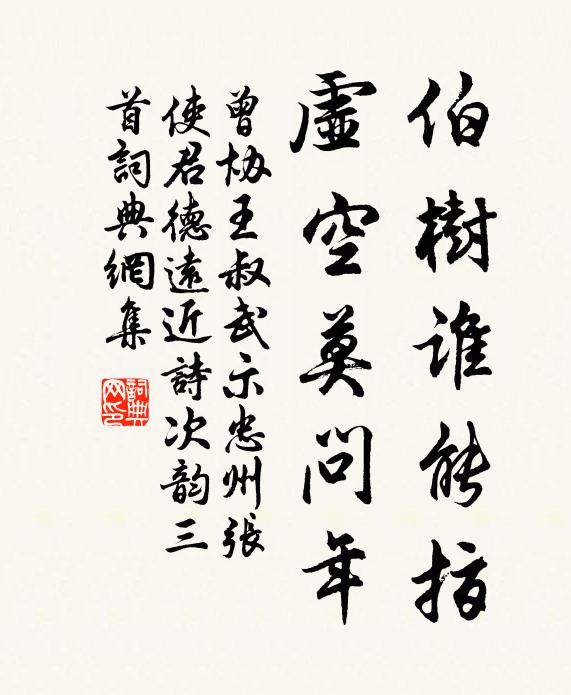 伯樹誰能指
虛空莫問年
曾協王叔武示忠州張
使君德遠近詩次韵三
首詞典網集
詞典网印